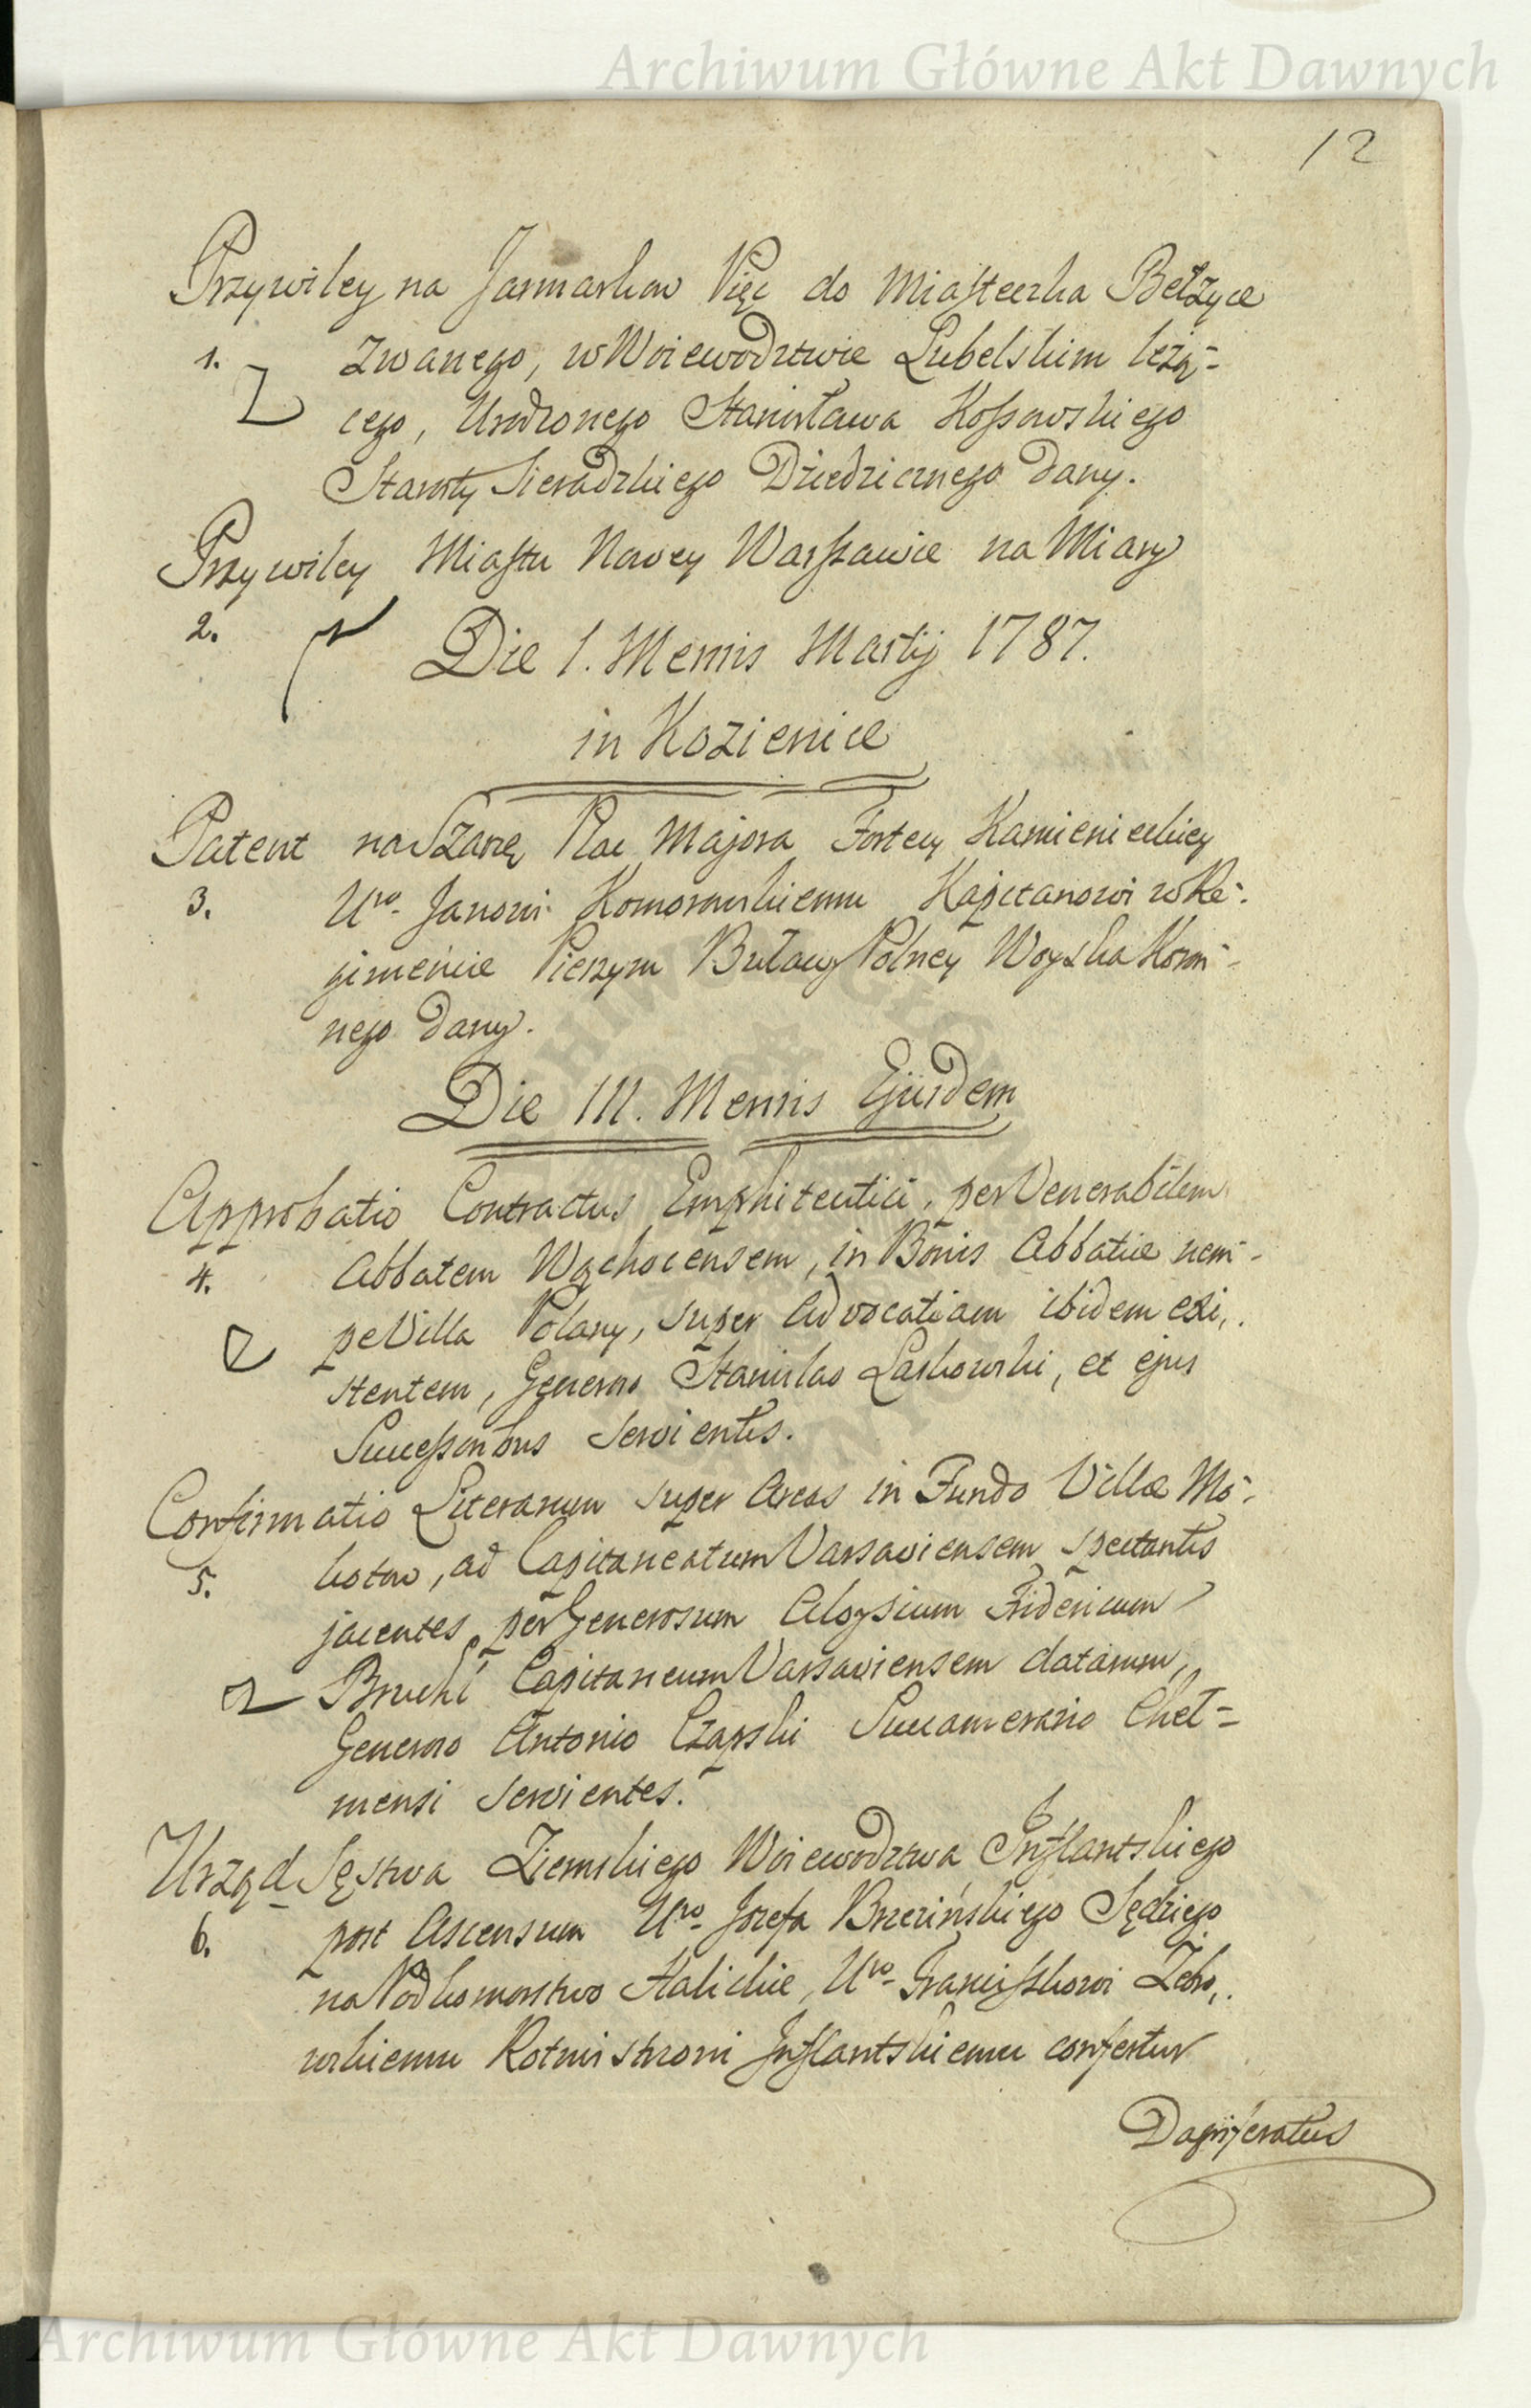 Archiwum Główne Akt Dawnych
12
Przywiley na Jarmarkow Pięć do Miasteczka Bełżyce
1. zwanego, w Woiewodztwie Lubelskim leżą=
cego, Urodzonego Stanisława Kossowskiego
Starosty Sieradzkiego Dziedzicznego dany.
Przywiley Miastu Nowey Warszawie na Miary
2.
Die 1. Mensis Martij 1787.
in Kozienice
Patent na Szarżę Plac Majora Fortecy Kamienieckiey
3. Uro. Janowi Komorowskiemu Kapitanowi w Re=
gimencie Pieszym Buławy Polney Woyska Koron=
nego dany.
Die III. Mensis Ejusdem
Approbatio Contractus Emphiteutici, per Venerabilem
4. Abbatem Wąchocensem, in Bonis Abbatiæ nem=
pe Villa Polany, super Advocatiam ibidem exi,.
stentem, Generoso Stanislao Laskowski, et ejus
Successoribus servientis.
Confirmatio Literarum super Areas in Fundo Villæ Mo=
5. kotow, ad Capitaneatum Varsaviensem spectantis
jacentes per Generosum Aloysium Fridericum
Bruchl Capitaneum Varsaviensem datarum,
Generoso Antonio Czapski Succamerario Cheł=
mensi servientes.
Urząd Sęstwa Ziemskiego Woiewodztwa Inflantskiego
6. post Ascensum Uro. Jozefa Brzezińskiego Sędziego
na Podkomorstwo Halickie, Uro. Franciszkowi Zebo,.
wskiemu Rotmistrzowi Inflantskiemu confertur
Dapiferatus
Archiwum Główne Akt Dawnych